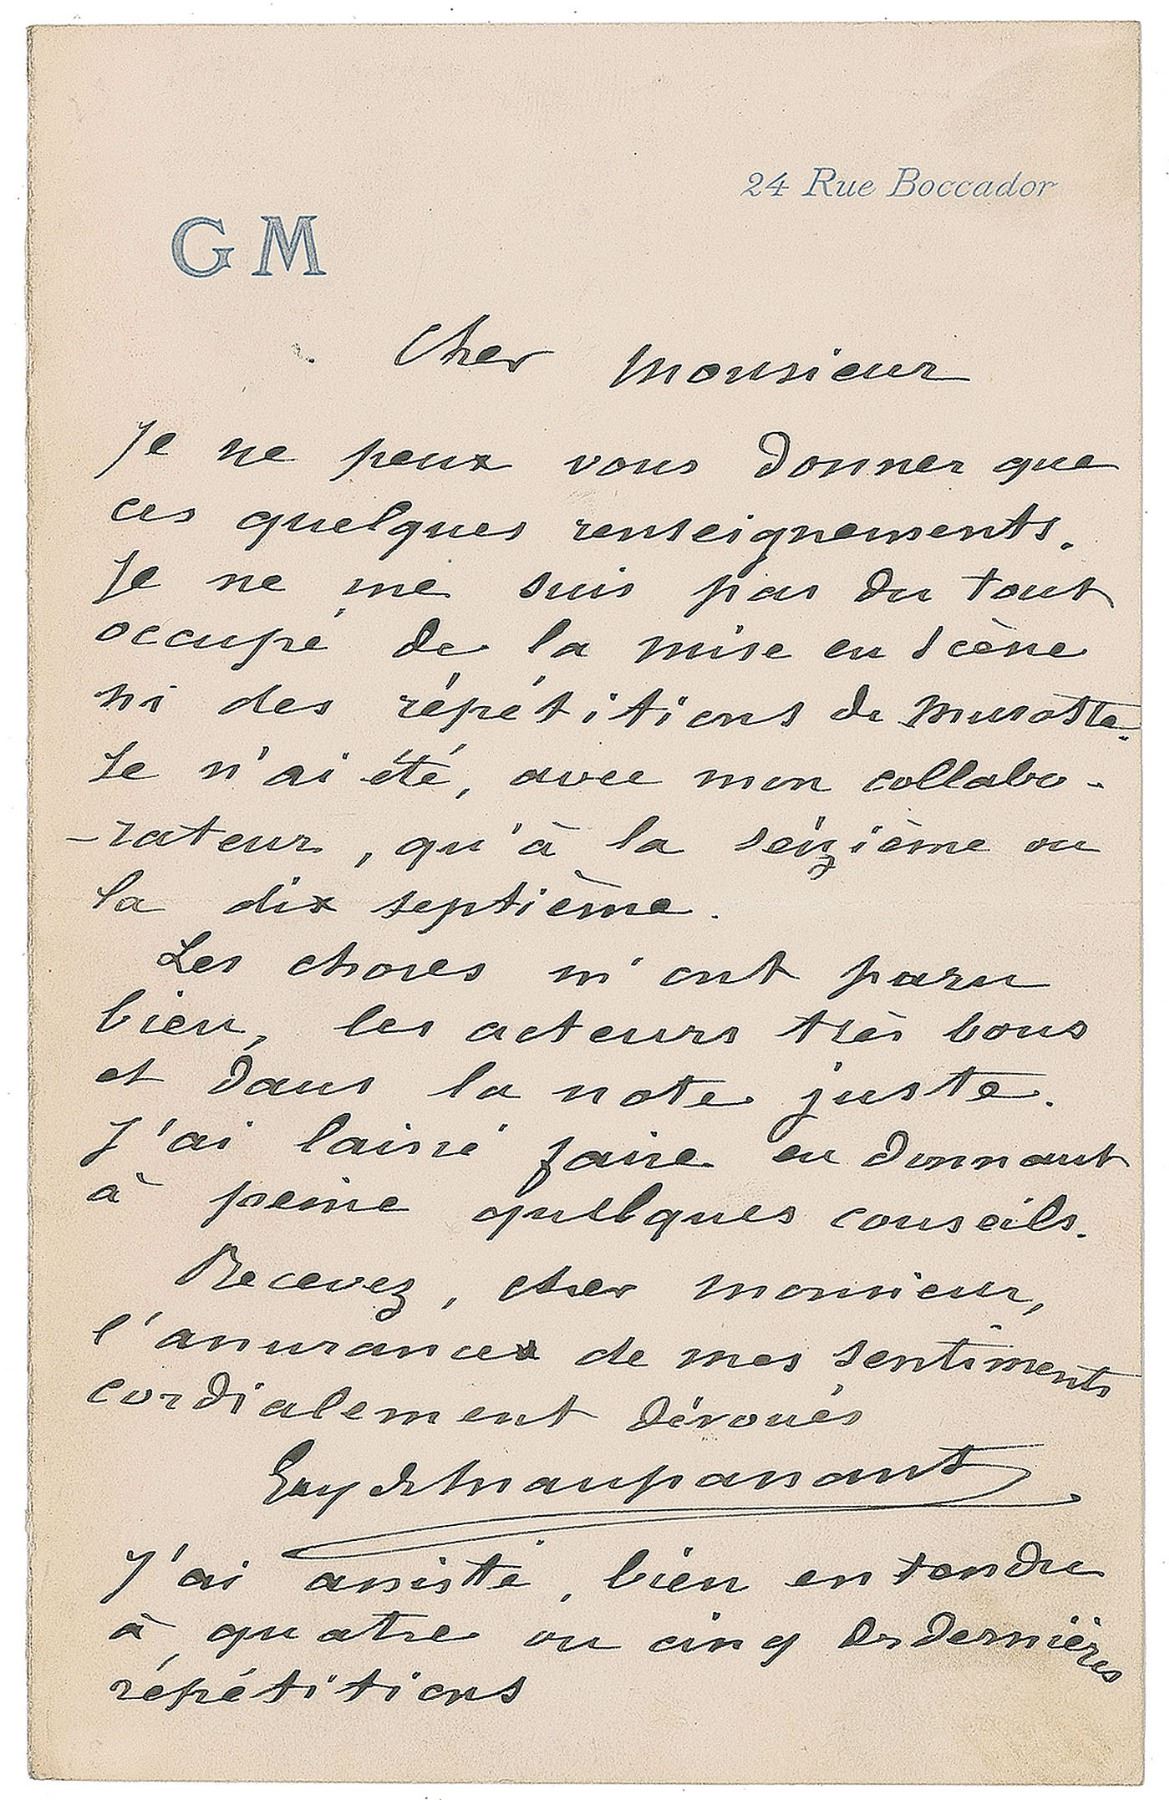 24 Rue Boccador
G M
Cher Monsieur
Je ne peux vous donner que
ces quelques renseignements.
Je ne me suis pas du tout
occupé de la mise en scène
ni des répétitions de Musotte.
Je n'ai été, avec mon collabo-
-rateur, qu'à la seizième ou
la dix septième.
Les choses m'ont paru
bien, les acteurs très bons
et dans la note juste.
J'ai laissé faire en donnant
à peine quelques conseils.
Recevez, cher monsieur,
l'assurance de mes sentiments
cordialement dévoués
Guy de Maupassant
J'ai assisté, bien entendu
à quatre ou cinq des dernières
répétitions